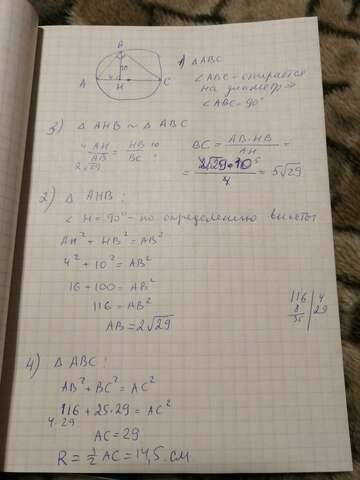 B
10
A 4 H C
1) △ABC
∠ABC - опирается
на диаметр ⇒
∠ABC = 90°
3) △AHB ~ △ABC
4 AH / AB 2√29 = HB 10 / BC
BC = AB · HB / AH =
= 2√29 · 10 5 / 4 = 5√29
2) △AHB:
∠H = 90° - по определению высоты
AH² + HB² = AB²
4² + 10² = AB²
16 + 100 = AB²
116 = AB²
AB = 2√29
116 | 4
8 | 29
36
4) △ABC:
AB² + BC² = AC²
116 + 25·29 = AC²
4·29
AC = 29
R = 1/2 AC = 14,5 см